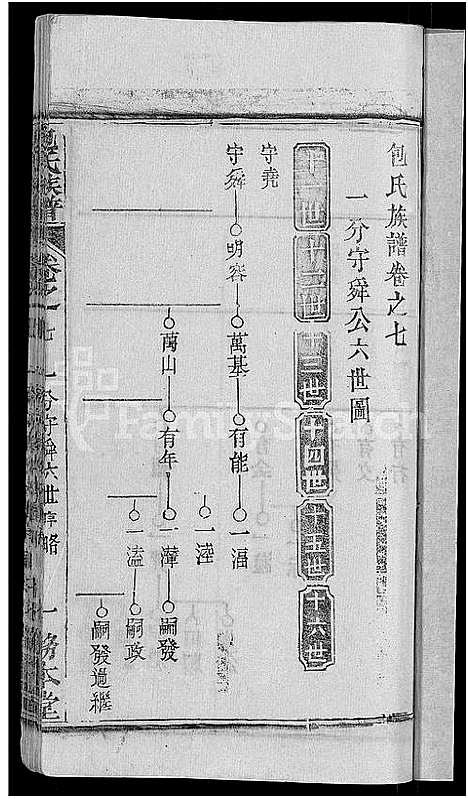 包氏族譜卷之七
一分守舜公六世圖
十一世 十二世 十三世 十四世 十五世 十六世
守堯
守舜 明容 萬基 有能 一湢
一湰
萬山 有年 一潷 嗣發
一溘 嗣政
嗣發過繼
包氏族譜 卷之七 一分守舜六世序略 一 務本堂